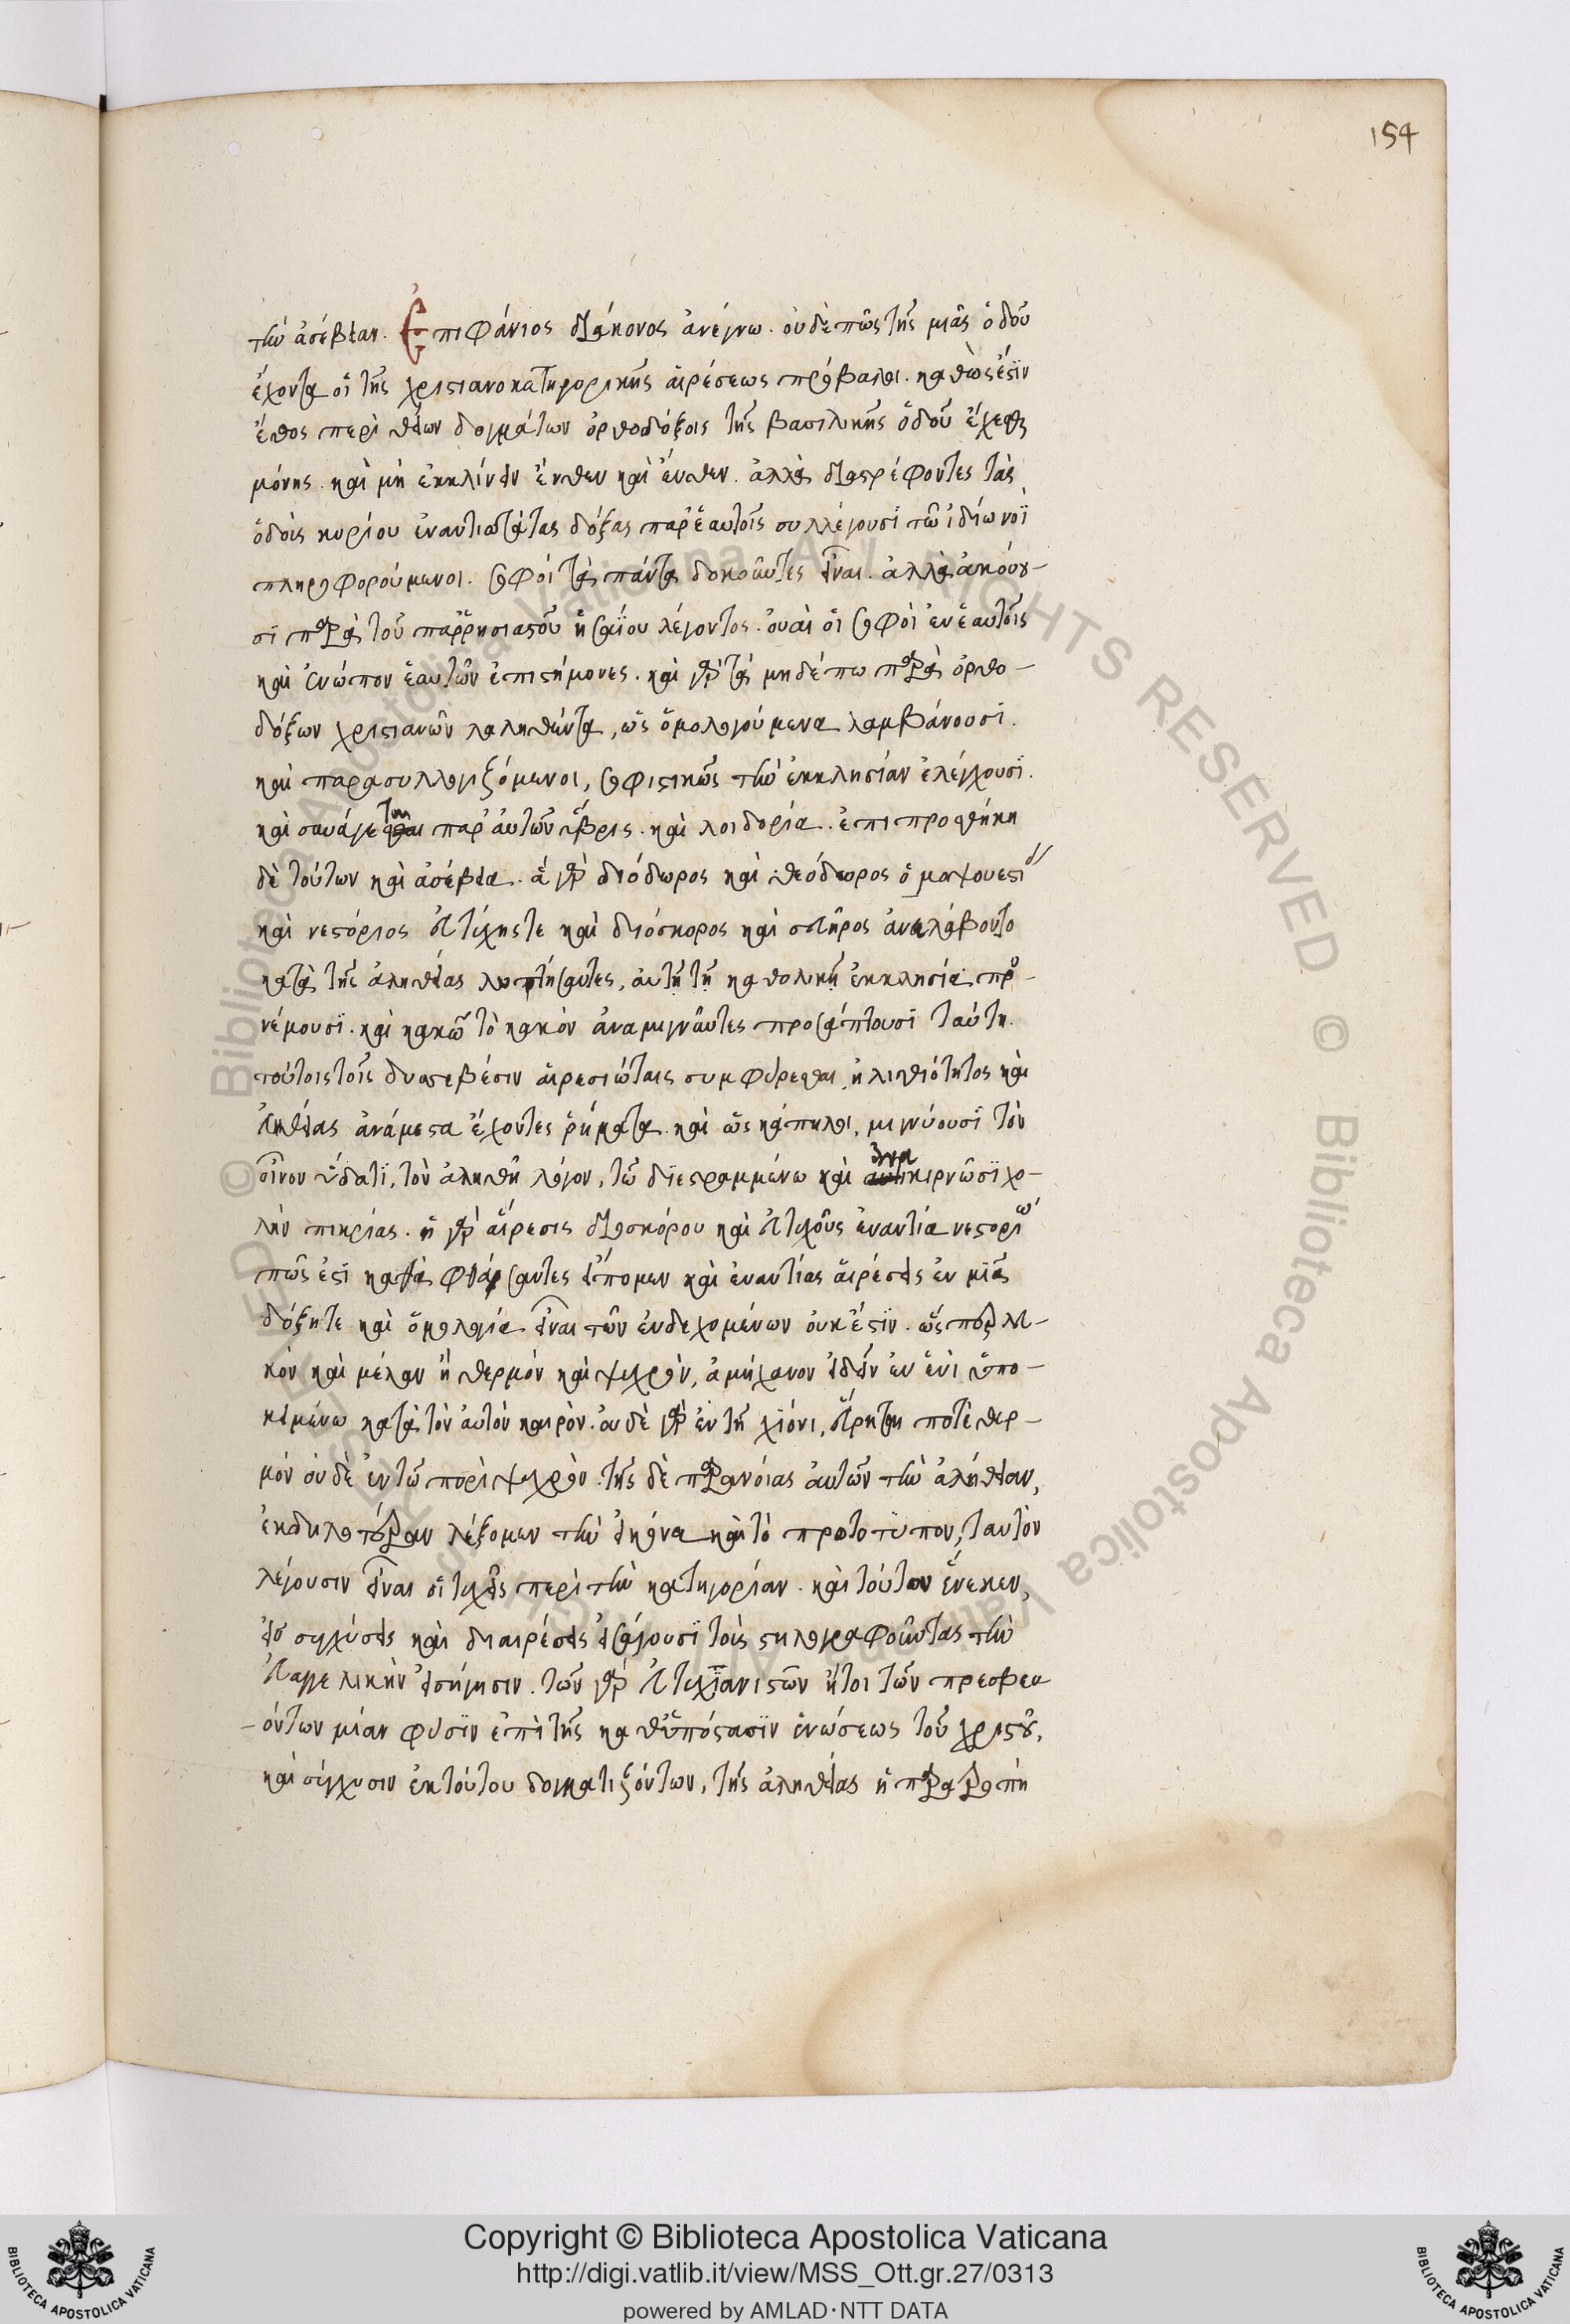 154
τὴν ἀσέβειαν. Ἐπιφάνιος διάκονος ἀνέγνω. οὐδέπως τῆς μιᾶς ὁδοῦ
ἔχονται οἱ τῆς χριστιανοκατηγορικῆς αἱρέσεως πρόβολοι. καθὼς ἐστὶν
ἔθος περὶ θείων δογμάτων ὀρθοδόξοις τῆς βασιλικῆς ὁδοῦ ἔχεσθαι
μόνης. καὶ μὴ ἐκκλίνειν ἔνθεν καὶ ἔνθεν. ἀλλὰ διαστρέφοντες τὰς
ὁδοὺς κυρίου ἐναντιωτάτας δόξας παρ' ἑαυτοῖς συλλέγουσι τῶ ἰδίω νοῒ
πληροφορούμενοι. σοφοὶ τὰ πάντα δοκοῦντες εἶναι. ἀλλὰ ἀκούου-
σι παρὰ τοῦ παρρησιαστοῦ ἡσαΐου λέγοντος. οὐαὶ οἱ σοφοὶ ἐν ἑαυτοῖς
καὶ ἐνώπιον ἑαυτῶν ἐπιστήμονες. καὶ γὰρ τὰ μηδέπω παρὰ ὀρθο-
δόξων χριστιανῶν λαληθέντα, ὡς ὁμολογούμενα λαμβάνουσι.
καὶ παρασυλλογιζόμενοι, σοφιστικῶς τὴν ἐκκλησίαν ἐλέγχουσι.
καὶ συνάγεται παρ' αὐτῶν ὕβρις. καὶ λοιδορία. ἐπιπροσθήκη
δὲ τούτων καὶ ἀσέβεια. ἃ γὰρ διόδωρος καὶ θεόδωρος ὁ μοψουεστί
καὶ νεστόριος εὐτυχής τε καὶ διόσκορος καὶ σευῆρος ἀνελάβοντο
κατὰ τῆς ἀληθείας λυττήσαντες, αὐτῇ τῇ καθολικῇ ἐκκλησία προ-
νέμουσι. καὶ κακῶ τὸ κακὸν ἀναμιγνῦντες προσάπτουσι ταύτη.
τούτοις τοῖς δυσσεβέσιν αἱρεσιώταις συμφύρεσθαι, ἠλιθιότητος καὶ
εὐηθείας ἀνάμεστα ἔχοντες ῥήματα. καὶ ὡς κάπηλοι, μιγνύουσι τὸν
οἶνον ὕδατι, τὸν ἀληθῆ λόγον, τῶ διεστραμμένω καὶ ἀνακιρνῶσι χο-
λὴν πικρίας. ἡ γὰρ αἵρεσις διοσκόρου καὶ εὐτυχοῦς ἐναντία νεστορίω
πῶς ἐστὶ καθὰ φθάσαντες εἴπομεν καὶ ἐναντίας αἱρέσεις ἐν μιᾶ
δόξη τε καὶ ὁμολογία εἶναι τῶν ἐνδεχομένων οὐκ ἔστιν. ὥσπερ λευ-
κὸν καὶ μέλαν ἢ θερμὸν καὶ ψυχρὸν, ἀμήχανον ἰδεῖν ἐν ἑνὶ ὑπο-
κειμένω κατὰ τὸν αὐτὸν καιρὸν. οὐδὲ γὰρ ἐν τῇ χιόνι, εὕρηται ποτὲ θερ-
μὸν οὐδὲ ἐν τῶ πυρὶ ψυχρὸν. τῆς δὲ παρανοίας αὐτῶν τὴν ἀλήθειαν,
ἐκδηλοτέραν λέξομεν τὴν εἰκόνα καὶ τὸ πρωτότυπον, ταυτὸν
λέγουσιν εἶναι οἱ τυχεῖς περὶ τὴν κατηγορίαν. καὶ τούτου ἕνεκεν,
εἰς συγχύσεις καὶ διαιρέσεις εἰσάγουσι τοὺς στηλογραφοῦντας τὴν
εὐαγγελικὴν εἰσήγησιν. τῶν γὰρ εὐτυχϊανιστῶν ἤτοι τῶν πρεσβευ
-όντων μίαν φύσιν ἐπὶ τῆς καθ' ὑπόστασιν ἑνώσεως τοῦ χριστοῦ,
καὶ σύγχυσιν ἐκ τούτου δογματιζόντων, τῆς ἀληθείας ἡ παρατροπὴ
© Biblioteca Apostolica Vaticana ALL RIGHTS RESERVED © Biblioteca Apostolica Vaticana
Copyright © Biblioteca Apostolica Vaticana
http://digi.vatlib.it/view/MSS_Ott.gr.27/0313
powered by AMLAD·NTT DATA
BIBLIOTECA APOSTOLICA VATICANA
BIBLIOTECA APOSTOLICA VATICANA